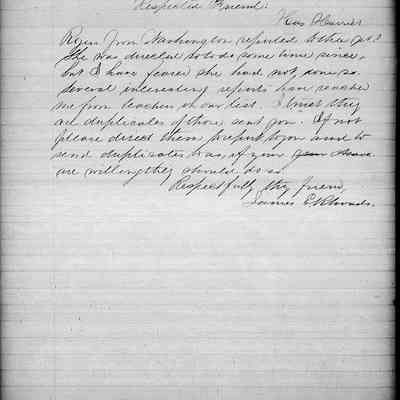 Respected Friend:
Has Harriet
Rogers from Washington reported to thee yet?
She was directed so to do some time since,
but I have feared she had not done so.
Several interesting reports have reached
me from teachers on our list. I trust they
are duplicates of those sent you. If not
please direct them to report to you and to
send duplicates to us, if you
are willing they should do so.
Respectfully thy friend,
James E. Rhoads.